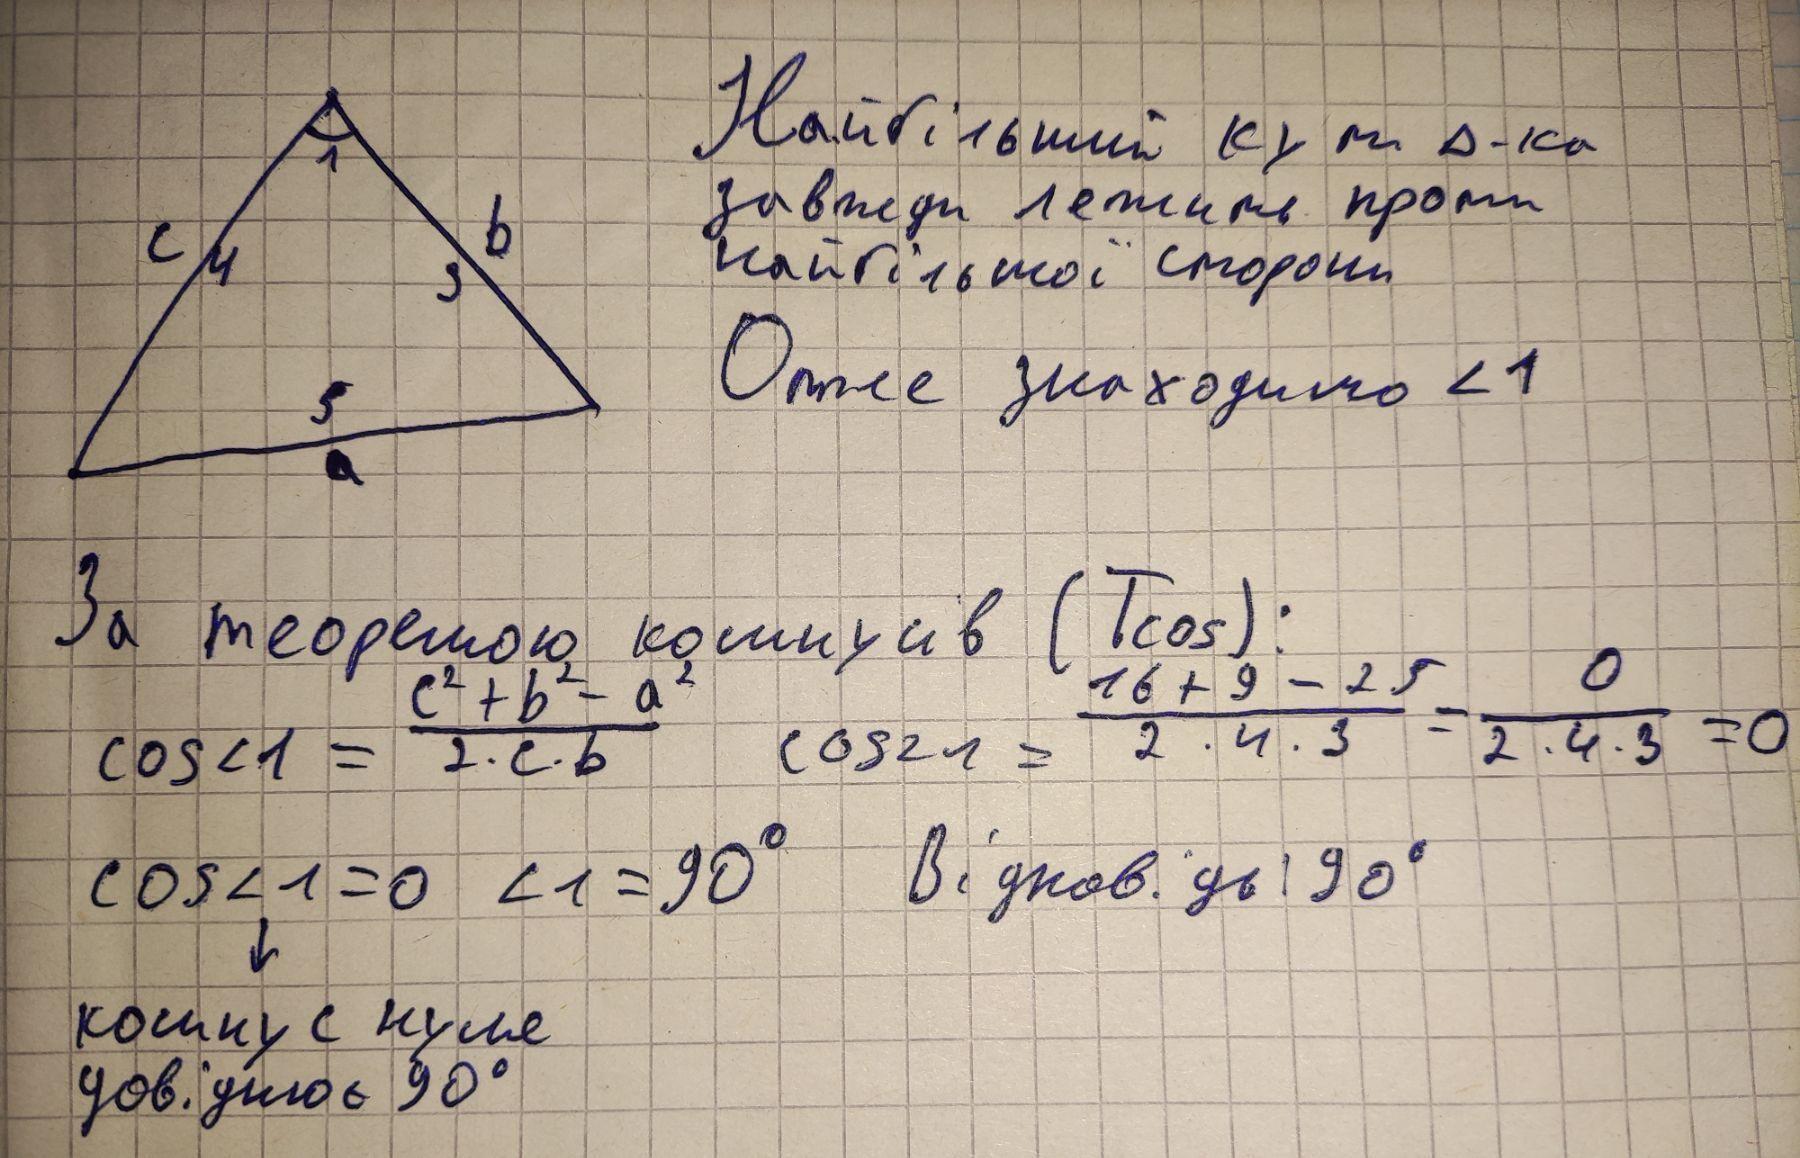 Найбільший кут Δ-ка
завжди лежить проти
найбільшої сторони
Отже знаходимо <1
1
c 4
3 b
5
a
За теоремою косинусів (Tcos):
cos<1 = c²+b²-a² / 2·c·b cos<1 = 16+9-25 / 2·4·3 = 0 / 2·4·3 = 0
cos<1=0 <1=90° Відповідь: 90°
↓
косинус нуля
довідник 90°